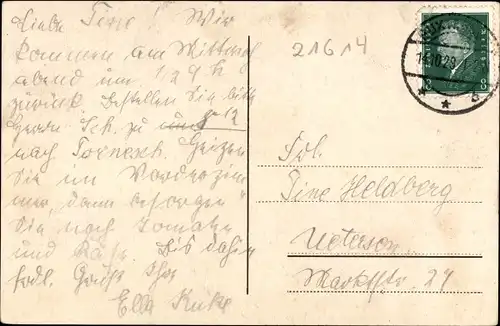 Liebe Tine! Wir
kommen am Mittwoch
abend um 1/2 9 h
zurück. Bestellen Sie bitte
Herrn Sch. zu
nach Tornesch. Heizen
Sie im Vorderzim
mer, dann besorgen
Sie noch Tomaten
und Käse. Bis dahin
frdl. Gruß Ihre
Ella
21614
14.10.29
8 8
Frl.
Tine Heldberg
Uetersen
Marktstr. 24